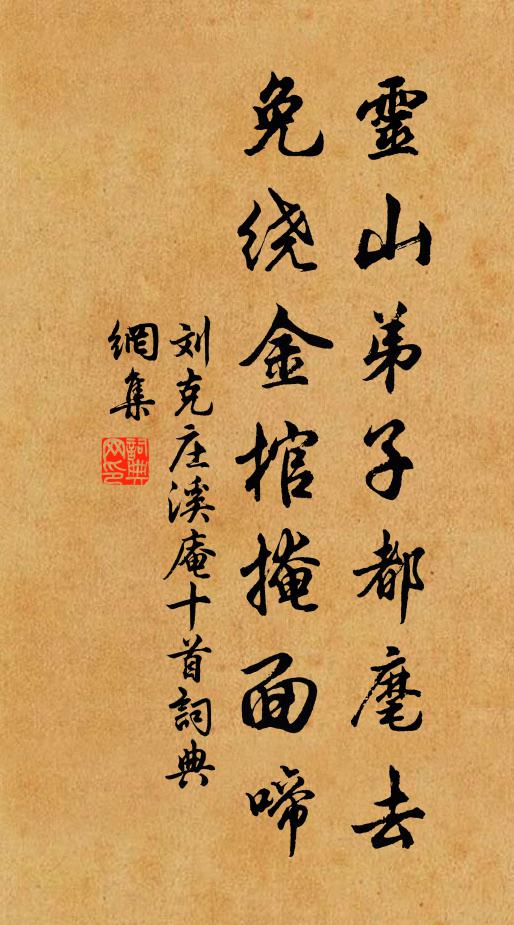 靈山弟子都麾去
免绕金棺掩面啼
刘克庄溪庵十首詞典
網集
詞典
网印